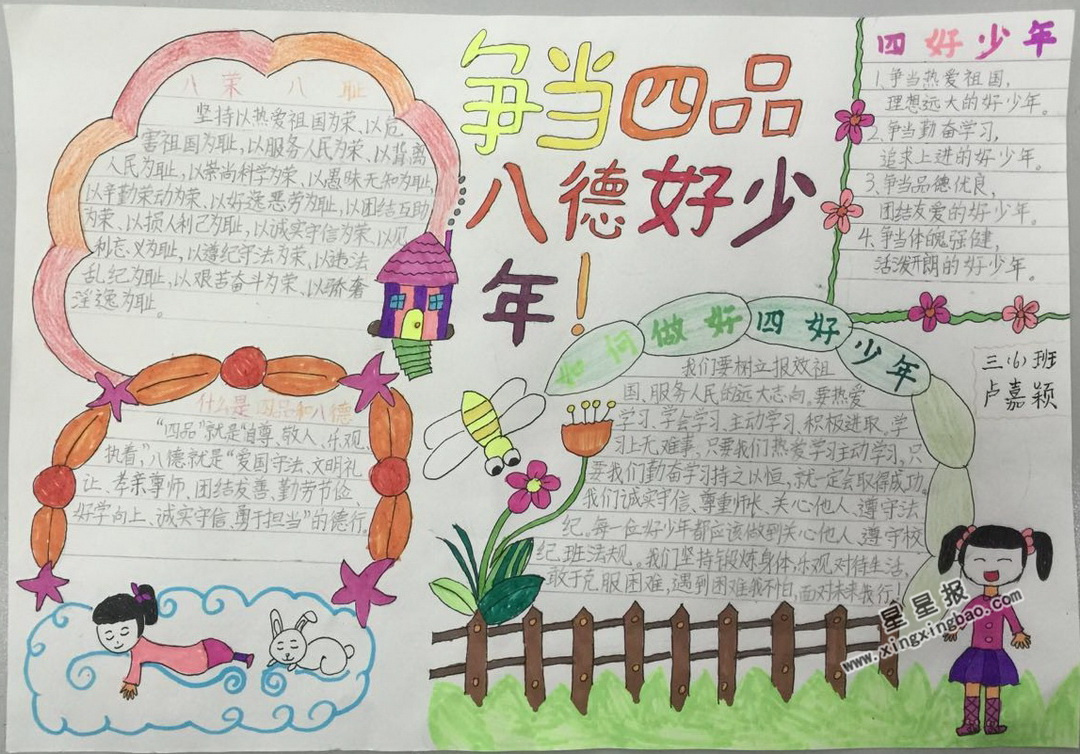 争当四品
八德好少
年！
八荣八耻
坚持以热爱祖国为荣、以危
害祖国为耻，以服务人民为荣、以背离
人民为耻，以崇尚科学为荣、以愚昧无知为耻，
以辛勤劳动为荣、以好逸恶劳为耻，以团结互助
为荣、以损人利己为耻，以诚实守信为荣、以见
利忘义为耻，以遵纪守法为荣、以违法
乱纪为耻，以艰苦奋斗为荣、以骄奢
淫逸为耻。
四好少年
1.争当热爱祖国，
理想远大的好少年。
2.争当勤奋学习，
追求上进的好少年。
3.争当品德优良，
团结友爱的好少年。
4.争当体魄强健，
活泼开朗的好少年。
什么是四品和八德
“四品”就是“自尊、敬人、乐观、
执着，”八德就是“爱国守法、文明礼
让、孝亲尊师、团结友善、勤劳节俭、
好学向上、诚实守信、勇于担当”的德行。
如何做好四好少年
我们要树立报效祖
国、服务人民的远大志向。要热爱
学习、学会学习、主动学习、积极进取、学
习上无难事，只要我们热爱学习主动学习，只
要我们勤奋学习持之以恒，就一定会取得成功。
我们诚实守信、尊重师长、关心他人、遵守法
纪。每一位好少年都应该做到关心他人、遵守校
纪、班法规。我们坚持锻炼身体，乐观对待生活，
敢于克服困难，遇到困难我不怕，面对未来我行！
三（6）班
卢嘉颖
星星报
www.xingxingbao.com